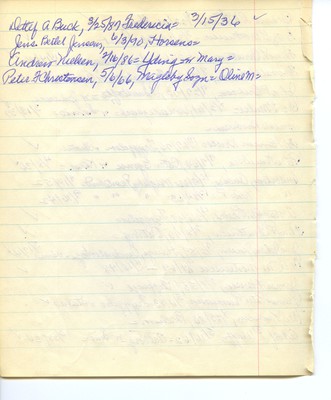 Detlef A Buck, 3/25/87 Fredericia= 3/15/36 ✓
Jens Bertel Jensen, 6/3/90, Horsens=
Andrew Nielsen, 2/16/86= Yding= w Mary=
Peter F Christensen, 5/6/66, Sogn= Oline M=